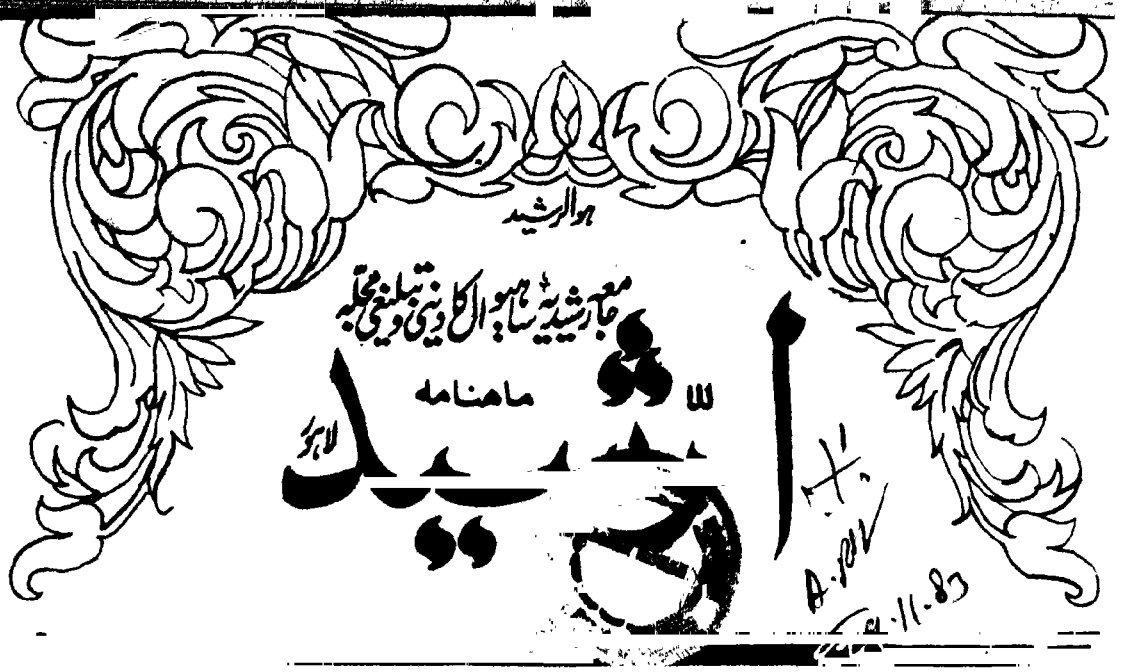 ہوالرشید
جامعہ رشیدیہ ساہیوال کا دینی و تبلیغی مجلّہ
ماھنامہ
الرشید
لاہور
11-83